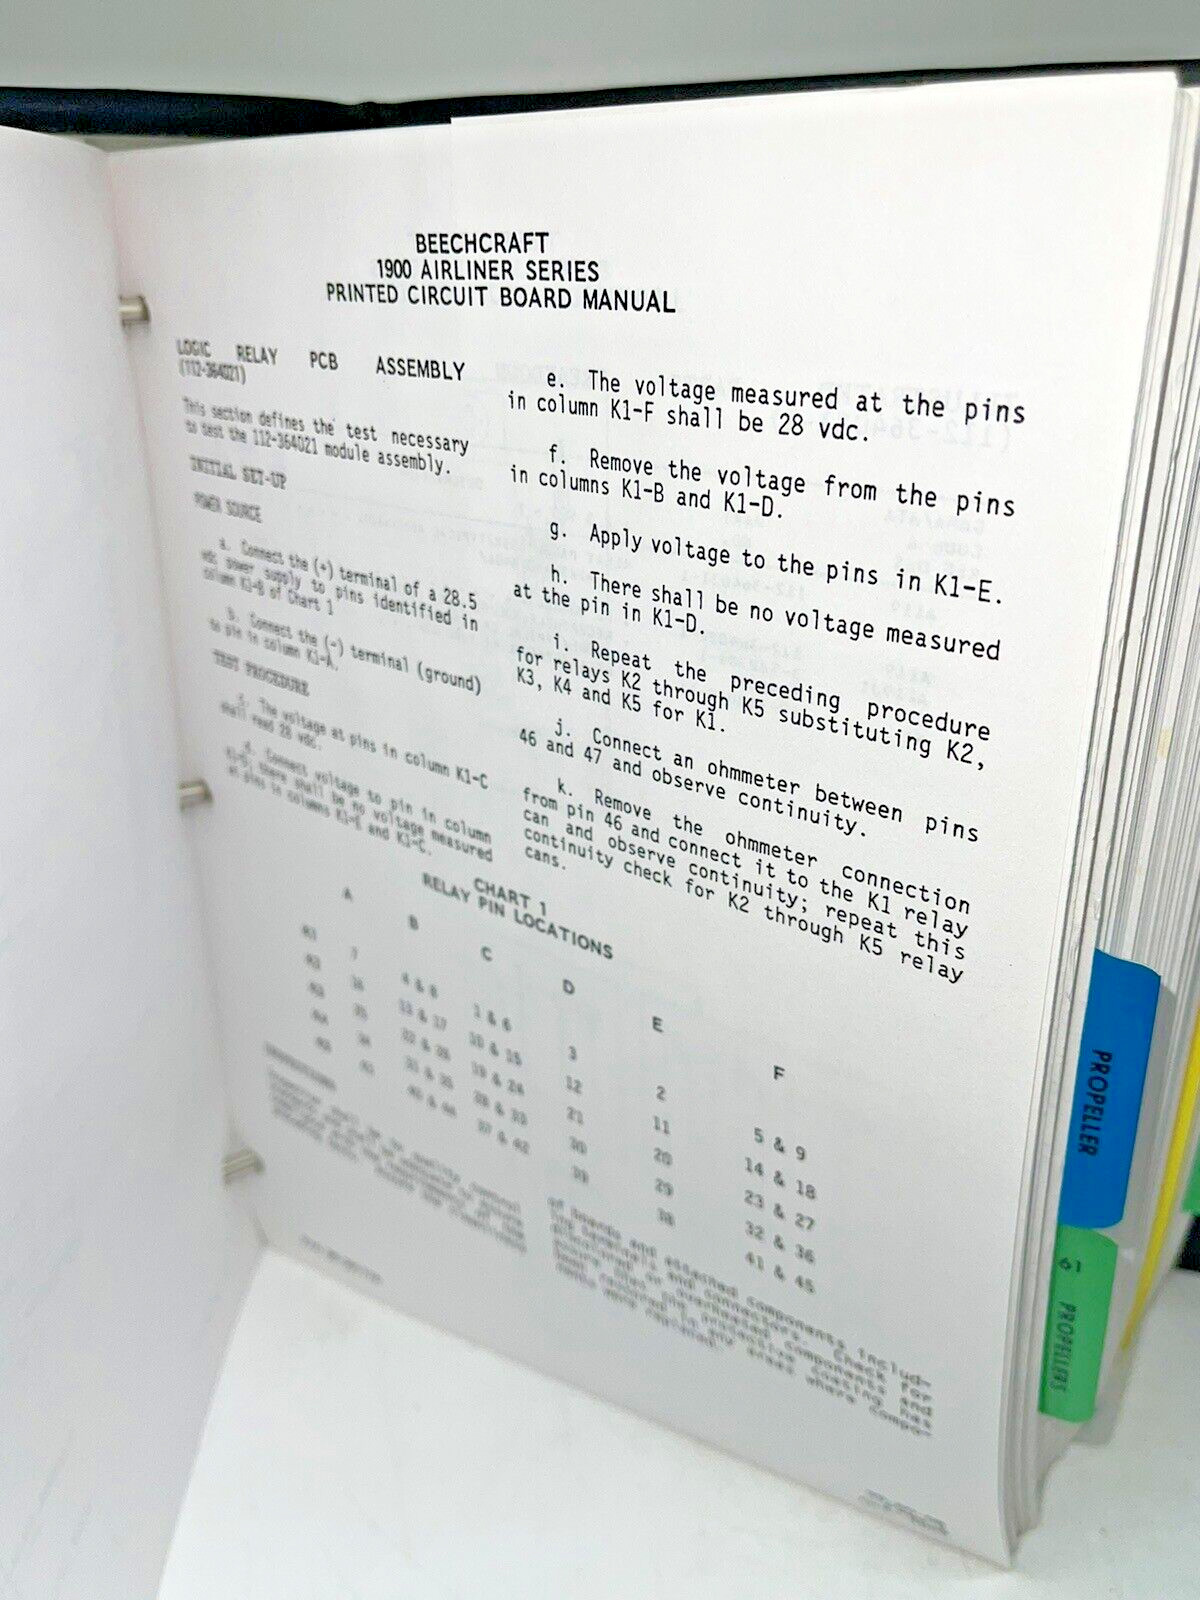 BEECHCRAFT
1900 AIRLINER SERIES
PRINTED CIRCUIT BOARD MANUAL
LOGIC RELAY PCB ASSEMBLY
(112-364021)
This section defines the test necessary
to test the 112-364021 module assembly.
INITIAL SET-UP
POWER SOURCE
a. Connect the (+) terminal of a 28.5
vdc power supply to pins identified in
column K1-B of Chart 1
b. Connect the (-) terminal (ground)
to pin in column K1-A.
TEST PROCEDURE
c. The voltage at pins in column K1-C
shall read 28 vdc.
d. Connect voltage to pin in column
K1-D; there shall be no voltage measured
at pins in columns K1-E and K1-C.
e. The voltage measured at the pins
in column K1-F shall be 28 vdc.
f. Remove the voltage from the pins
in columns K1-B and K1-D.
g. Apply voltage to the pins in K1-E.
h. There shall be no voltage measured
at the pin in K1-D.
i. Repeat the preceding procedure
for relays K2 through K5 substituting K2,
K3, K4 and K5 for K1.
j. Connect an ohmmeter between pins
46 and 47 and observe continuity.
k. Remove the ohmmeter connection
from pin 46 and connect it to the K1 relay
can and observe continuity; repeat this
continuity check for K2 through K5 relay
cans.
CHART 1
RELAY PIN LOCATIONS
A B C D E F
K1 7 4 & 8 1 & 6 3 2 5 & 9
K2 16 13 & 17 10 & 15 12 11 14 & 18
K3 25 22 & 26 19 & 24 21 20 23 & 27
K4 34 31 & 35 28 & 33 30 29 32 & 36
K5 43 40 & 44 37 & 42 39 38 41 & 45
of boards and attached components includ-
ing terminals and connectors. Check for
components and
protective coating has
been restored in any areas where compo-
nents were replaced.
PROPELLER
61 PROPELLERS